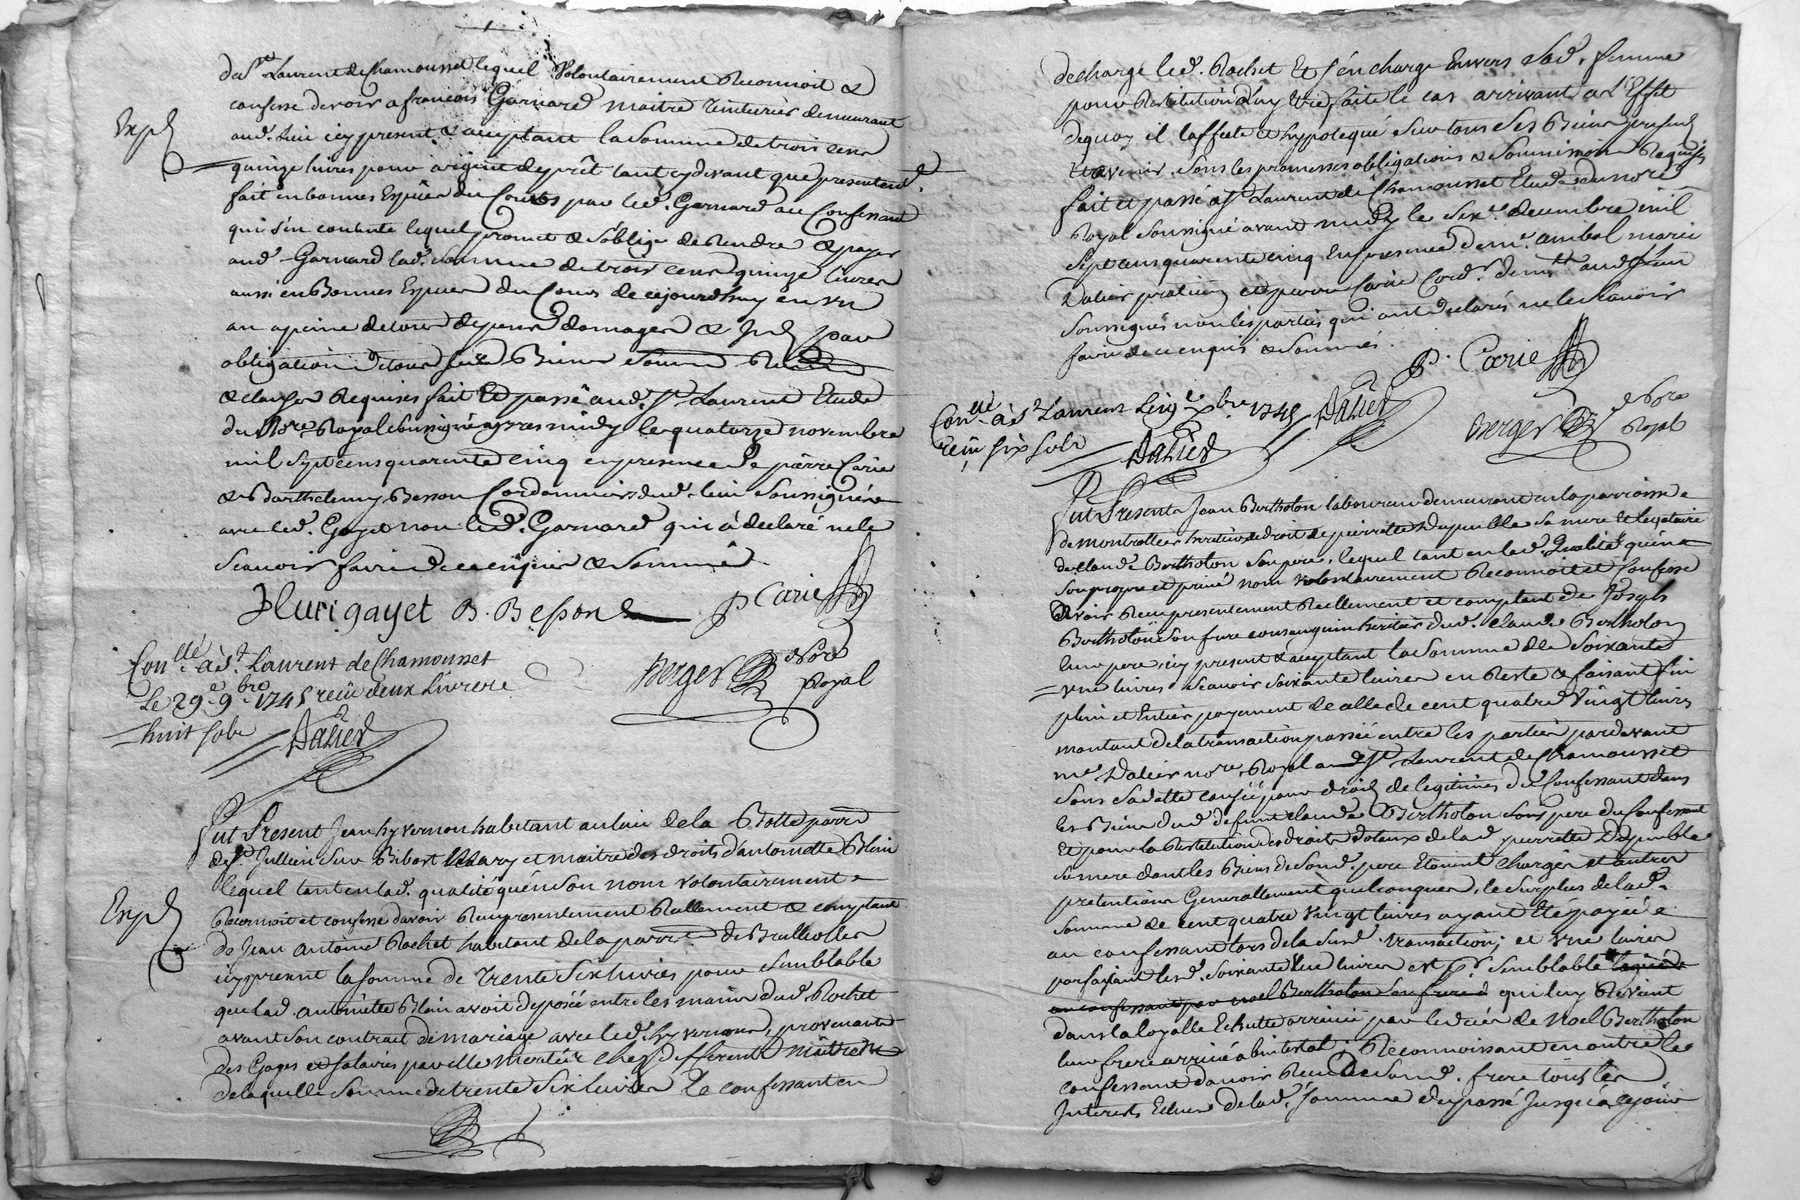 du St Laurent de Chamousset lequel volontairement Reconnoit &
confesse devoir a francois Garnard maitre teinturier demeurant
aud. lieu icy present & acceptant la somme de trois cens
Expd
quinze livres pour argent de prêt tant cydevant que presentemt.
fait en bonnes Espèces du Cours par led. Garnard au Confessant
qui s'en contente lequel promet & s'oblige de Rendre & payer
aud. Garnard lad. somme de trois cens quinze livres
aussi en Bonnes Especes du Cours de cejourdhuy en un
an a peine de tous depens domages & Intd par
obligation de tous ses Biens
& clauses Requises fait Et passé aud. St Laurent Etude
du Nore Royal soussigné apres midy le quatorze novembre
mil sept cens quarente cinq en presence de pierre Carie
& Barthelemy Besson Cordonniers dud. lieu soussignés
avec led. Gayet non led. Garnard qui a declaré ne le
scavoir faire de ce enquis & sommé
fleuri gayet B. Besson P Carie
Conllé à St Laurent de Chamousset
Le 29e 9bre 1745 reçu deux Livres
huit sols Dalier
Berger Nore Royal
fut Present Jean hyvernon habitant au lieu de la Botte parr
de St Jullien sur Bibost Mary et maitre des droits d'antoinette Blein
lequel tant en lad. qualité qu'en son nom volontairement
Expd
Reconnoit et confesse d'avoir Reçu presentement Reellement & comptant
de Jean Antoine Rochet habitant de la parr de Brulliolles
icy present la somme de trente six livres pour semblable
que lad. antoinette Blein avoit deposée entre les mains dud. Rochet
avant son contract de mariage avec led. hyvernon, provenante
des Gages et salaires par elle mérités chez differents maîtres
de laquelle somme de trente six livres le confessant en
decharge led. Rochet Et s'en charge Envers sad. femme
pour Restitution luy Etre faite le cas arrivant a l'Effet
de quoy il affecte & hypotequé sur tous ses Biens presens
et avenir sous les promesses obligations & soumissions Requises
fait et passé a St Laurent de Chamousset Etude du nore
Royal soussigné avant midy le sixe decembre mil
sept cens quarente cinq En presence de me. ambal marie
Dalier praticien et pierre Carie Cordr. demts aud. lieu
soussignés non les parties qui ont declarés ne le scavoir
faire de ce enquis & sommés.
P. Carie
Conllé à St Laurent Le 19e Xbre 1745 Dalier
reçu six sols Dalier
Berger Nore Royal
fut Present Jean Bertholon laboureur demeurant en la parroisse
de montrottier heritier de droit de pierrette Dupuble sa mere Et legataire
de claude Bertholon son pere, lequel tant en lad. Qualité qu'en
son propre et privé nom volontairement Reconnoit et Confesse
avoir Reçu presentement Reellement et comptant de Joseph
Bertholon son frere consanguin heritier dud. claude Bertholon
leur pere icy present & acceptant la somme de soixante
une livres scavoir soixante livres en Reste & faisant fin
plein et Entier payement de celle de cent quatre vingt livres
montant de la transaction passée entre les parties pardevant
me. Dalier nore. Royal aud. St Laurent de Chamousset
sous sa datte causée pour droits de legitimes du Confessant dans
les Biens dud. defunt claude Bertholon son pere du Confessant
Et pour la Restitution des droits dotaux de lad. pierrette Dupuble
sa mere dont les Biens de sond. pere Etoient Charges et autres
pretentions Generallement quelconques, le surplus de lad.
somme de cent quatre vingt livres ayant Eté payée
au confessant lors de la susd. transaction; et une livre
parfaisant lesd. soixante une livres et pr. semblable
au confessant par noel Bertholon son frere qui luy Revient
dans la loyalle Echutte arrivée par le deces de Noel Bertholon
leur frere arrivé abintestat; Reconnoissant en outre le
confessant d'avoir Reçu de sond. frere tous les
Interets Echus de lad. somme du passé Jusqu'a cejour